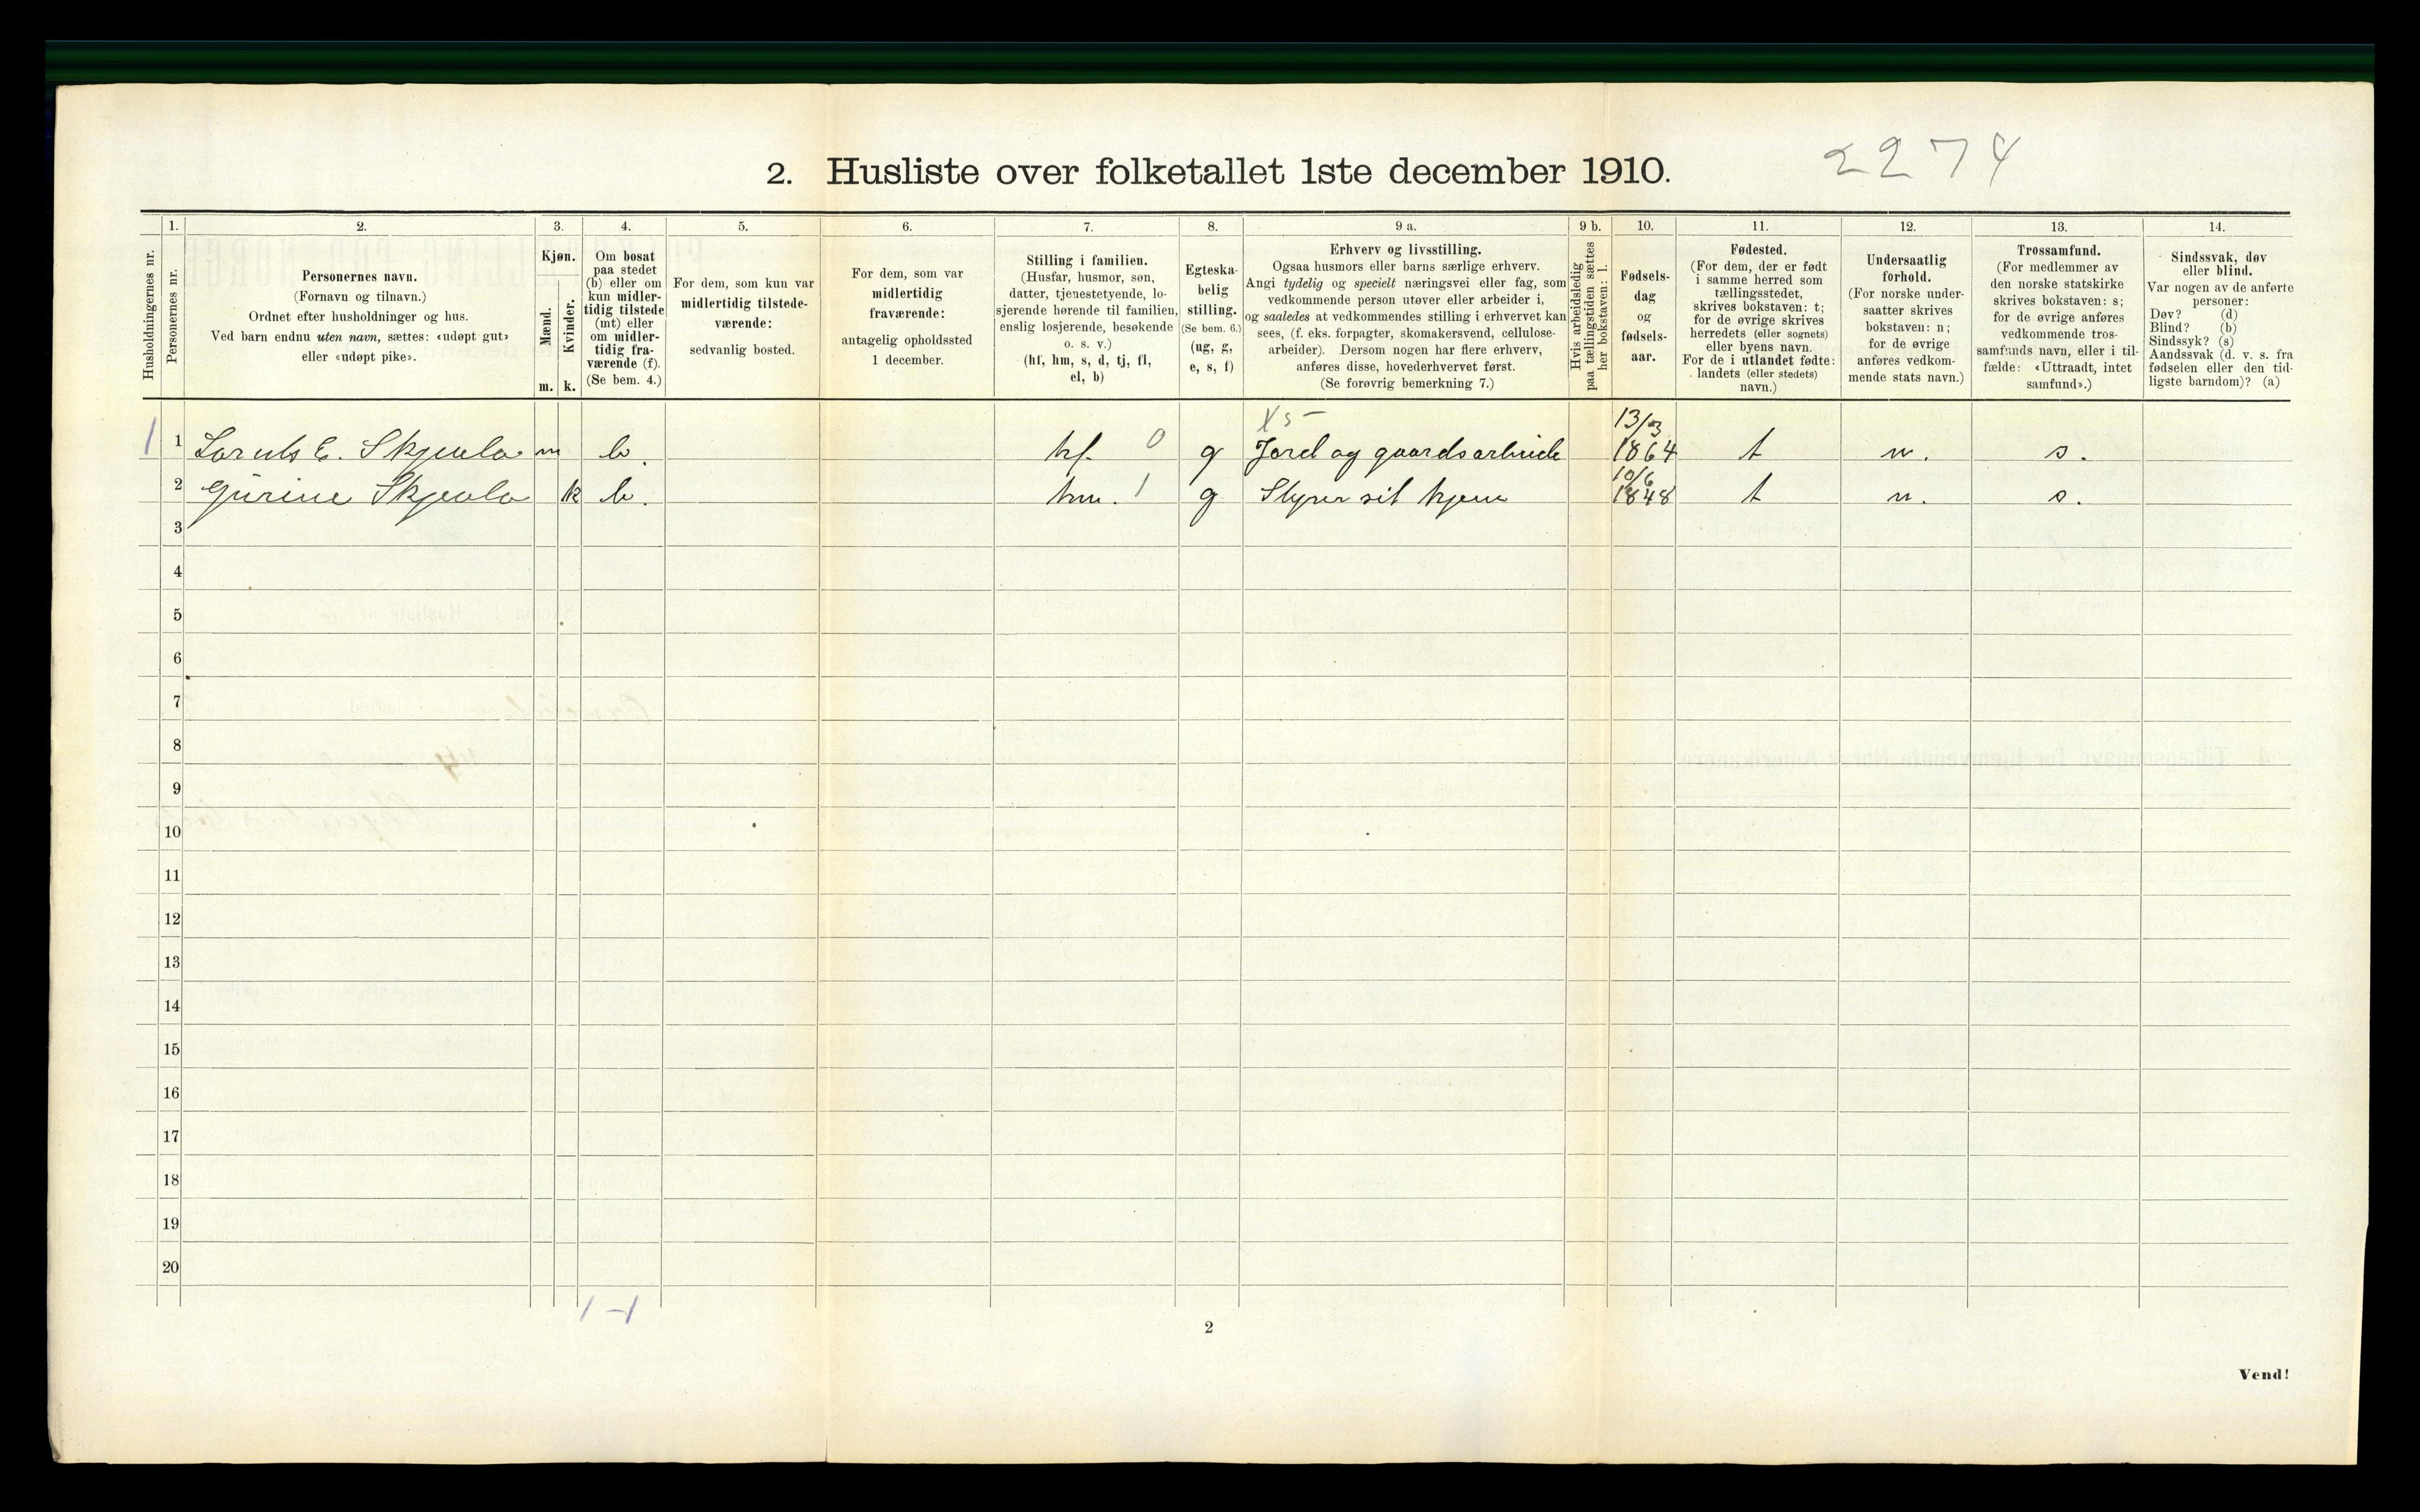 2274
2. Husliste over folketallet 1ste december 1910.
1. 2. 3. 4. 5. 6. 7. 8. 9 a. 9 b. 10. 11. 12. 13. 14.
Husholdningernes nr.
Personernes nr.
Personernes navn.
(Fornavn og tilnavn.)
Ordnet efter husholdninger og hus.
Ved barn endnu uten navn, sættes: «udøpt gut»
eller «udøpt pike».
Kjøn.
Mænd.
Kvinder.
m. k.
Om bosat
paa stedet
(b) eller om
kun midler-
tidig tilstede
(mt) eller
om midler-
tidig fra-
værende (f).
(Se bem. 4.)
For dem, som kun var
midlertidig tilstede-
værende:
sedvanlig bosted.
For dem, som var
midlertidig
fraværende:
antagelig opholdssted
1 december.
Stilling i familien.
(Husfar, husmor, søn,
datter, tjenestetyende, lo-
sjerende hørende til familien,
enslig losjerende, besøkende
o. s. v.)
(hf, hm, s, d, tj, fl,
el, b)
Egteska-
belig
stilling.
(Se bem. 6.)
(ug, g,
e, s, f)
Erhverv og livsstilling.
Ogsaa husmors eller barns særlige erhverv.
Angi tydelig og specielt næringsvei eller fag, som
vedkommende person utøver eller arbeider i,
og saaledes at vedkommendes stilling i erhvervet kan
sees, (f. eks. forpagter, skomakersvend, cellulose-
arbeider). Dersom nogen har flere erhverv,
anføres disse, hovederhvervet først.
(Se forøvrig bemerkning 7.)
Hvis arbeidsledig
paa tællingstiden sættes
her bokstaven: l.
Fødsels-
dag
og
fødsels-
aar.
Fødested.
(For dem, der er født
i samme herred som
tællingsstedet,
skrives bokstaven: t;
for de øvrige skrives
herredets (eller sognets)
eller byens navn.
For de i utlandet fødte:
landets (eller stedets)
navn.)
Undersaatlig
forhold.
(For norske under-
saatter skrives
bokstaven: n;
for de øvrige
anføres vedkom-
mende stats navn.)
Trossamfund.
(For medlemmer av
den norske statskirke
skrives bokstaven: s;
for de øvrige anføres
vedkommende tros-
samfunds navn, eller i til-
fælde: «Uttraadt, intet
samfund».)
Sindssvak, døv
eller blind.
Var nogen av de anførte
personer:
Døv? (d)
Blind? (b)
Sindssyk? (s)
Aandssvak (d. v. s. fra
fødselen eller den tid-
ligste barndom)? (a)
1 1 E. m b. hf. 0 g Jord og gaardsarbeide 13/3 1864 t n. s.
2 Gurine k b. hm. 1 g Styrer sit hjem 10/6 1848 t n. s.
3
4
5
6
7
8
9
10
11
12
13
14
15
16
17
18
19
20
1 - 1
2
Vend!